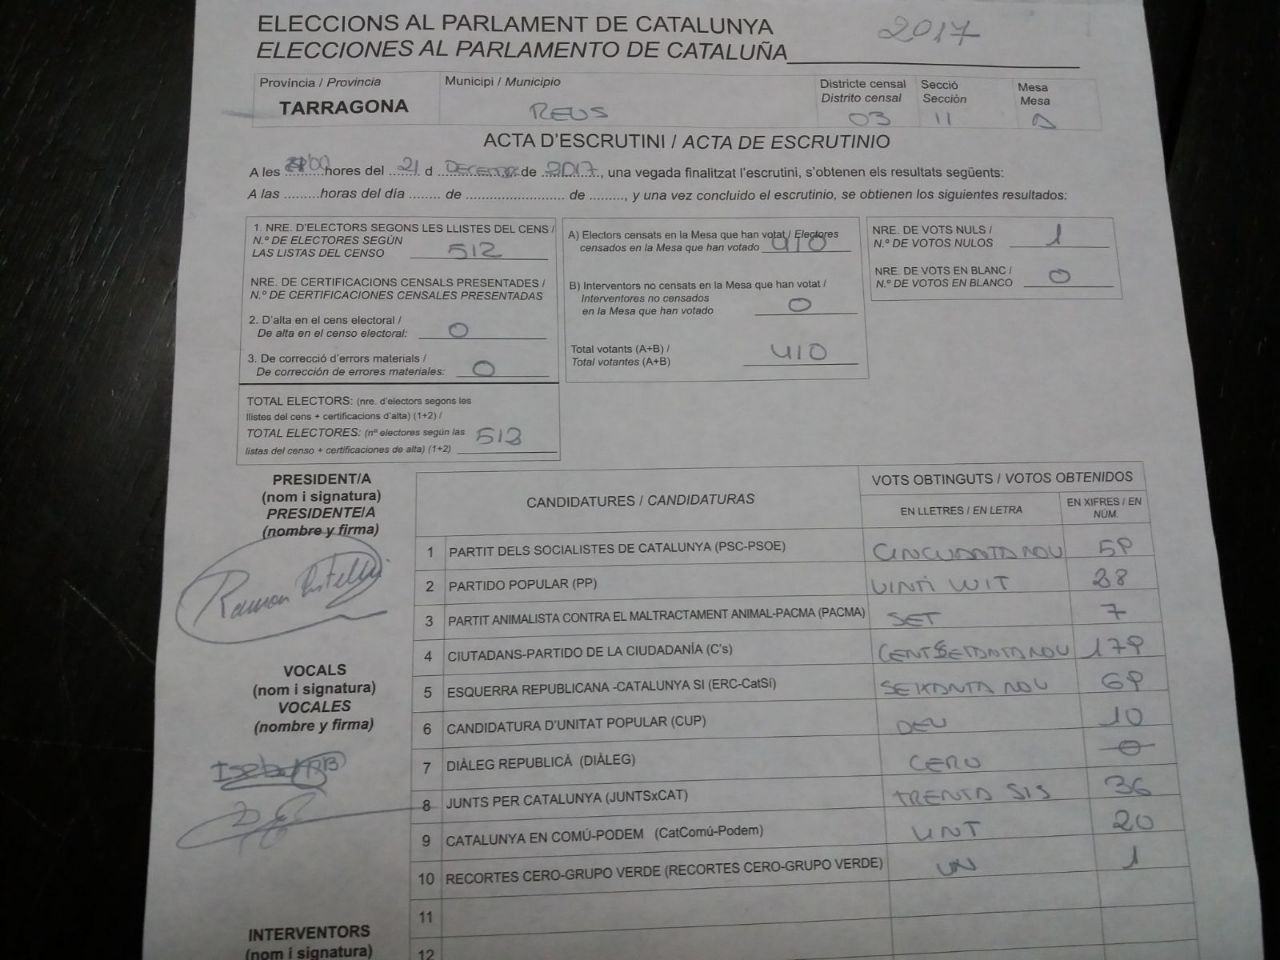 ELECCIONS AL PARLAMENT DE CATALUNYA
ELECCIONES AL PARLAMENTO DE CATALUÑA 2017
Província / Provincia
TARRAGONA
Municipi / Municipio
REUS
Districte censal
Distrito censal
03
Secció
Sección
11
Mesa
Mesa
A
ACTA D'ESCRUTINI / ACTA DE ESCRUTINIO
A les ........ hores del 21 d DECEMBRE de 2017, una vegada finalitzat l'escrutini, s'obtenen els resultats següents:
A las ......... horas del día ........ de ......................... de ........., y una vez concluido el escrutinio, se obtienen los siguientes resultados:
1. NRE. D'ELECTORS SEGONS LES LLISTES DEL CENS /
N.º DE ELECTORES SEGÚN
LAS LISTAS DEL CENSO 512
NRE. DE CERTIFICACIONS CENSALS PRESENTADES /
N.º DE CERTIFICACIONES CENSALES PRESENTADAS
2. D'alta en el cens electoral /
De alta en el censo electoral: 0
3. De correcció d'errors materials /
De corrección de errores materiales: 0
TOTAL ELECTORS: (nre. d'electors segons les
llistes del cens + certificacions d'alta) (1+2) /
TOTAL ELECTORES: (nº electores según las
listas del censo + certificaciones de alta) (1+2) 512
A) Electors censats en la Mesa que han votat / Electores
censados en la Mesa que han votado 410
B) Interventors no censats en la Mesa que han votat /
Interventores no censados
en la Mesa que han votado 0
Total votants (A+B) /
Total votantes (A+B) 410
NRE. DE VOTS NULS /
N.º DE VOTOS NULOS 1
NRE. DE VOTS EN BLANC /
N.º DE VOTOS EN BLANCO 0
PRESIDENT/A
(nom i signatura)
PRESIDENTE/A
(nombre y firma)
Ramon
VOCALS
(nom i signatura)
VOCALES
(nombre y firma)
INTERVENTORS
(nom i signatura)
CANDIDATURES / CANDIDATURAS
VOTS OBTINGUTS / VOTOS OBTENIDOS
EN LLETRES / EN LETRA
EN XIFRES / EN
NÚM.
1 PARTIT DELS SOCIALISTES DE CATALUNYA (PSC-PSOE) CINCUANTA NOU 59
2 PARTIDO POPULAR (PP) VINTI WIT 28
3 PARTIT ANIMALISTA CONTRA EL MALTRACTAMENT ANIMAL-PACMA (PACMA) SET 7
4 CIUTADANS-PARTIDO DE LA CIUDADANÍA (C's) CENT SETANTA NOU 179
5 ESQUERRA REPUBLICANA -CATALUNYA SI (ERC-CatSí) SEIXANTA NOU 69
6 CANDIDATURA D'UNITAT POPULAR (CUP) DEU 10
7 DIÀLEG REPUBLICÀ (DIÀLEG) CERO 0
8 JUNTS PER CATALUNYA (JUNTSxCAT) TRENTA SIS 36
9 CATALUNYA EN COMÚ-PODEM (CatComú-Podem) VINT 20
10 RECORTES CERO-GRUPO VERDE (RECORTES CERO-GRUPO VERDE) UN 1
11
12